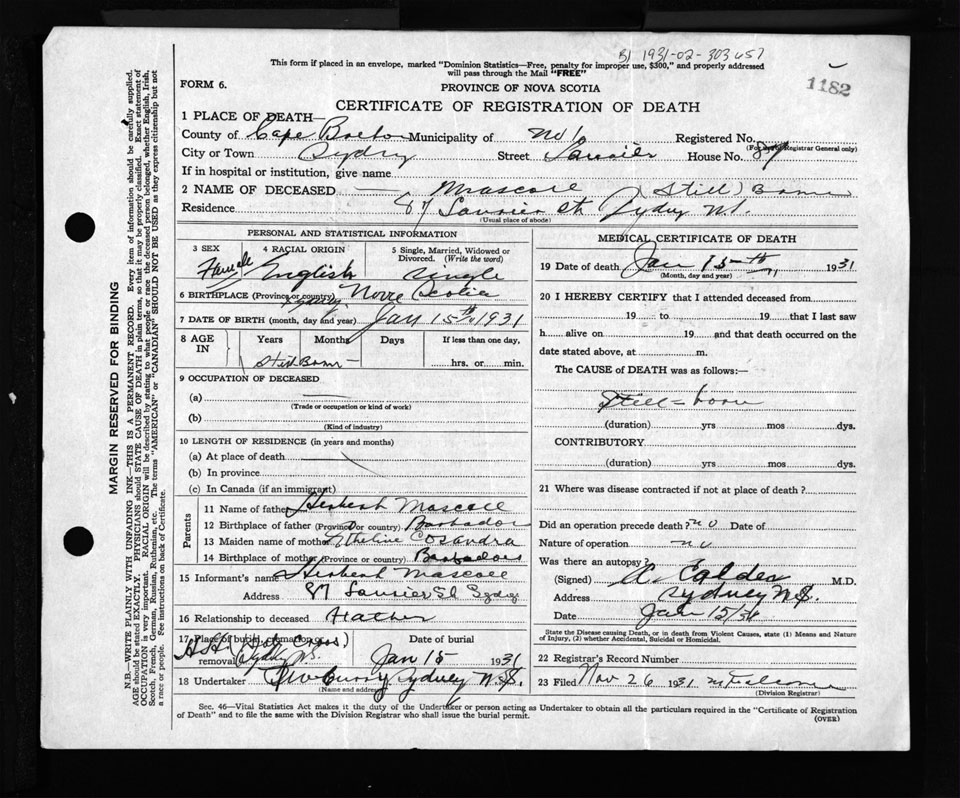 B1 1931-02-303457
This form if placed in an envelope, marked "Dominion Statistics—Free, penalty for improper use, $300," and properly addressed
will pass through the Mail "FREE"
1182
FORM 6.
PROVINCE OF NOVA SCOTIA
CERTIFICATE OF REGISTRATION OF DEATH
1 PLACE OF DEATH—
County of Cape Breton Municipality of No 1 Registered No.
(For use of Registrar General only)
City or Town Sydney Street Laurier House No. 87
If in hospital or institution, give name
2 NAME OF DECEASED — Mascoll (Still) Born
Residence 87 Laurier St Sydney N.S.
(Usual place of abode)
PERSONAL AND STATISTICAL INFORMATION
3 SEX Female
4 RACIAL ORIGIN English
5 Single, Married, Widowed or Divorced. (Write the word) Single
6 BIRTHPLACE (Province or country) Sydney Nova Scotia
7 DATE OF BIRTH (month, day and year) Jan 15th 1931
8 AGE IN Years Months Days If less than one day,
Still Born — hrs. or min.
9 OCCUPATION OF DECEASED
(a) —
(Trade or occupation or kind of work)
(b)
(Kind of industry)
10 LENGTH OF RESIDENCE (in years and months)
(a) At place of death
(b) In province
(c) In Canada (if an immigrant)
Parents
11 Name of father Herbert Mascoll
12 Birthplace of father (Province or country) Barbados
13 Maiden name of mother
14 Birthplace of mother (Province or country) Barbados
15 Informant's name Herbert Mascoll
Address 87 Laurier St Sydney
16 Relationship to deceased Father
17 Place of burial, cremation or removal Sydney N.S.
Date of burial Jan 15 1931
18 Undertaker Curry Sydney N.S.
(Name and address)
MEDICAL CERTIFICATE OF DEATH
19 Date of death Jan 15th 1931
(Month, day and year)
20 I HEREBY CERTIFY that I attended deceased from
19 to 19 that I last saw
h alive on 19 and that death occurred on the
date stated above, at m.
The CAUSE of DEATH was as follows:—
Still-born
(duration) yrs mos dys.
CONTRIBUTORY
(duration) yrs mos dys.
21 Where was disease contracted if not at place of death?
Did an operation precede death? no Date of
Nature of operation no
Was there an autopsy?
(Signed) Calder M.D.
Address Sydney N.S.
Date Jan 15/31
State the Disease causing Death, or in death from Violent Causes, state (1) Means and Nature
of Injury, (2) whether Accidental, Suicidal or Homicidal.
22 Registrar's Record Number
23 Filed Nov 26 1931
(Division Registrar)
Sec. 46—Vital Statistics Act makes it the duty of the Undertaker or person acting as Undertaker to obtain all the particulars required in the "Certificate of Registration
of Death" and to file the same with the Division Registrar who shall issue the burial permit.
(OVER)
MARGIN RESERVED FOR BINDING
N.B.—WRITE PLAINLY WITH UNFADING INK—THIS IS A PERMANENT RECORD. Every item of information should be carefully supplied.
AGE should be stated EXACTLY. PHYSICIANS should STATE CAUSE OF DEATH in plain terms, so that it may be properly classified. Exact statement of
OCCUPATION is very important. RACIAL ORIGIN will be described by stating to what people or race the deceased person belonged, whether English, Irish,
Scotch, French, German, Russian, Ruthenian, etc. The terms "AMERICAN" or "CANADIAN" SHOULD NOT BE USED as they express citizenship but not
a race or people. See instructions on back of Certificate.